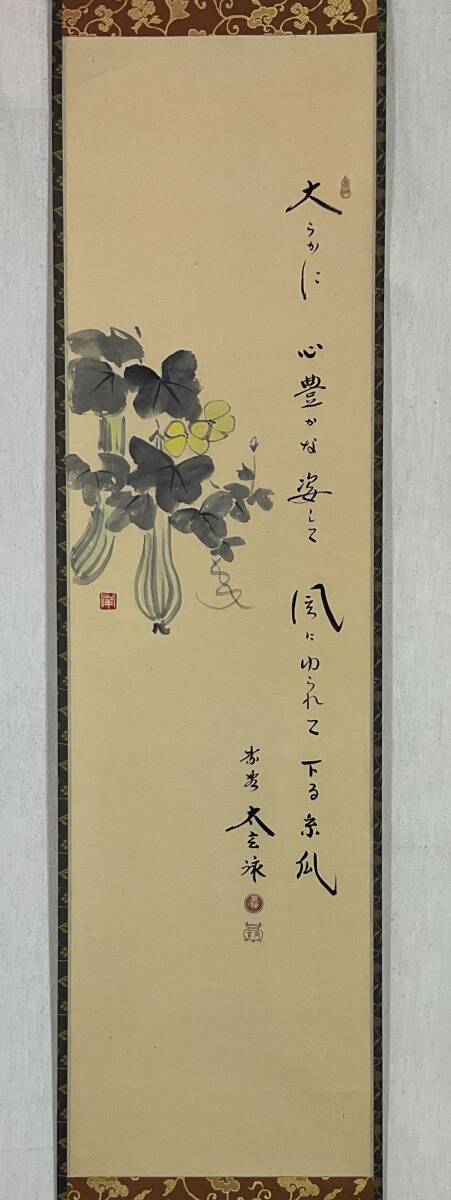 大らかに 心豊かな 姿して 風にゆられて 下る糸瓜
太玄詠